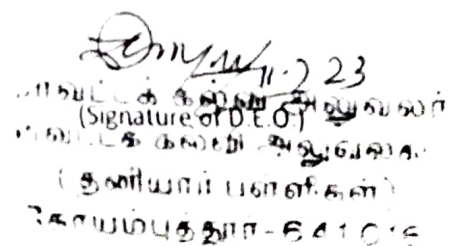 11.7.23
மாவட்டக் கல்வி அலுவலர்
(Signature of D.E.O.)
மாவட்டக் கல்வி அலுவலகம்
(தனியார் பள்ளிகள்)
கோயம்புத்தூர்-641018